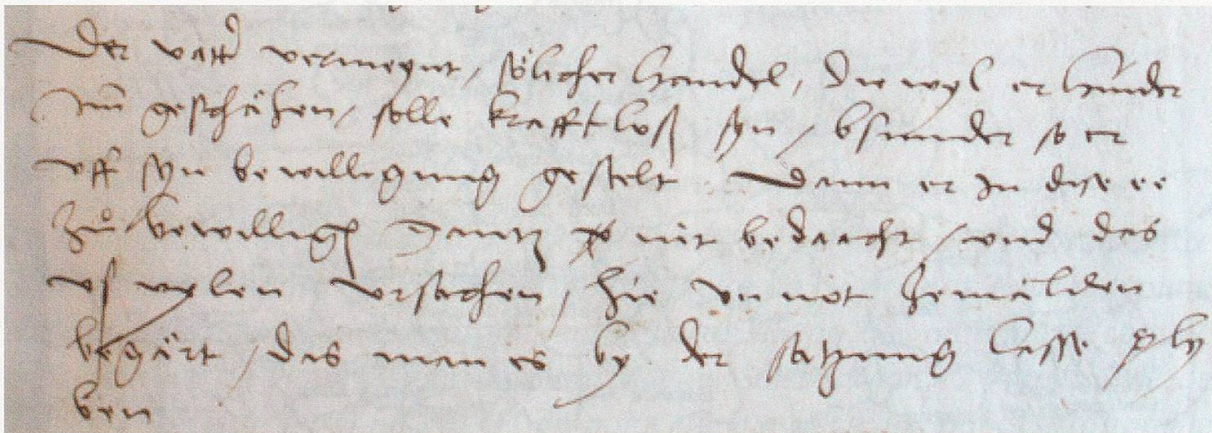 Der vatter vermeynt, sölicher handel, die wyl er hinder
Im geschähen, solle krafftloß syn, bsunder so er
uff syn bewilligung gestelt. Dann er In dise ee
zů bewilligen gantz nit bedaacht, und das
us vylen ursachen, hie unnot zemälden
begärt, das man es by der satzung lasse ply
ben